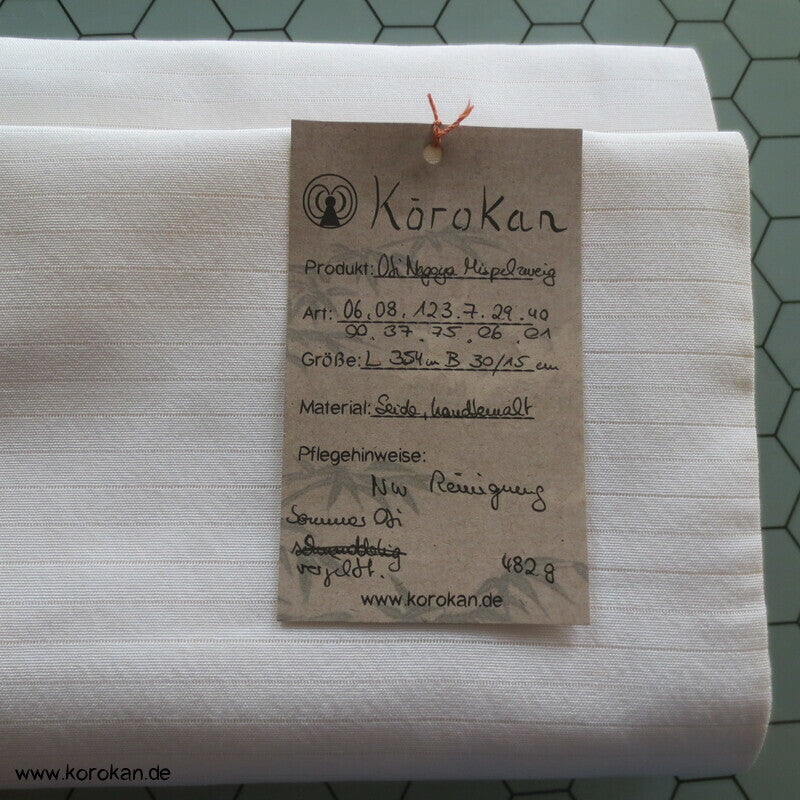 KōroKan
Produkt: Obi Nagoya Mispelzweig
Art: 06.08.123.7.29.40
90.37.75.06.01
Größe: L 354 m B 30/15 cm
Material: Seide, handbemalt
Pflegehinweise:
Nw Reinigung
Sommer Obi
vergilbt. 482 g
www.korokan.de
www.korokan.de